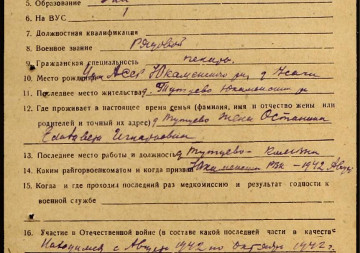 5. Образование
6. На ВУС
7. Должностная квалификация
8. Военное звание Рядовой
9. Гражданская специальность пекарь
10. Место рождения Удм. АССР Юкаменского р. д.
11. Последнее место жительства д. Тутаево Юкаменский р
12. Где проживает в настоящее время семья (фамилия, имя и отчество жены или
родителей и точный их адрес) д. Тутаево Жена Останина
Елизавета Игнатьевна
13. Последнее место работы и должность д. Тутаево-
14. Каким райгорвоенкоматом и когда призван Юкаменским РВК - 1942, Август
15. Когда и где проходил последний раз медкомиссию и результат годности к
военной службе
16. Участие в Отечественной войне (в составе какой последней части и в качестве
Находился с Август 1942 по Октябрь 1942 г.